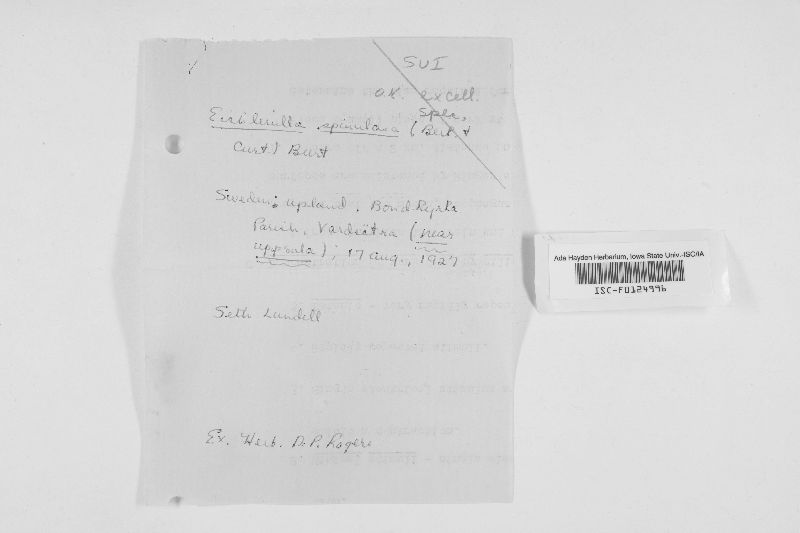 SUI
O.K. excell.
Spec.
Eichleriella spinulosa (Berk &
Curt) Burt
Sweden: Upland, Bondkyrka
Parish, Vardsätra (near
Uppsala); 17 Aug., 1927
Seth Lundell
Ex. Herb. D.P. Rogers
Ada Hayden Herbarium, Iowa State Univ.-ISC/IA
ISC-FU124996